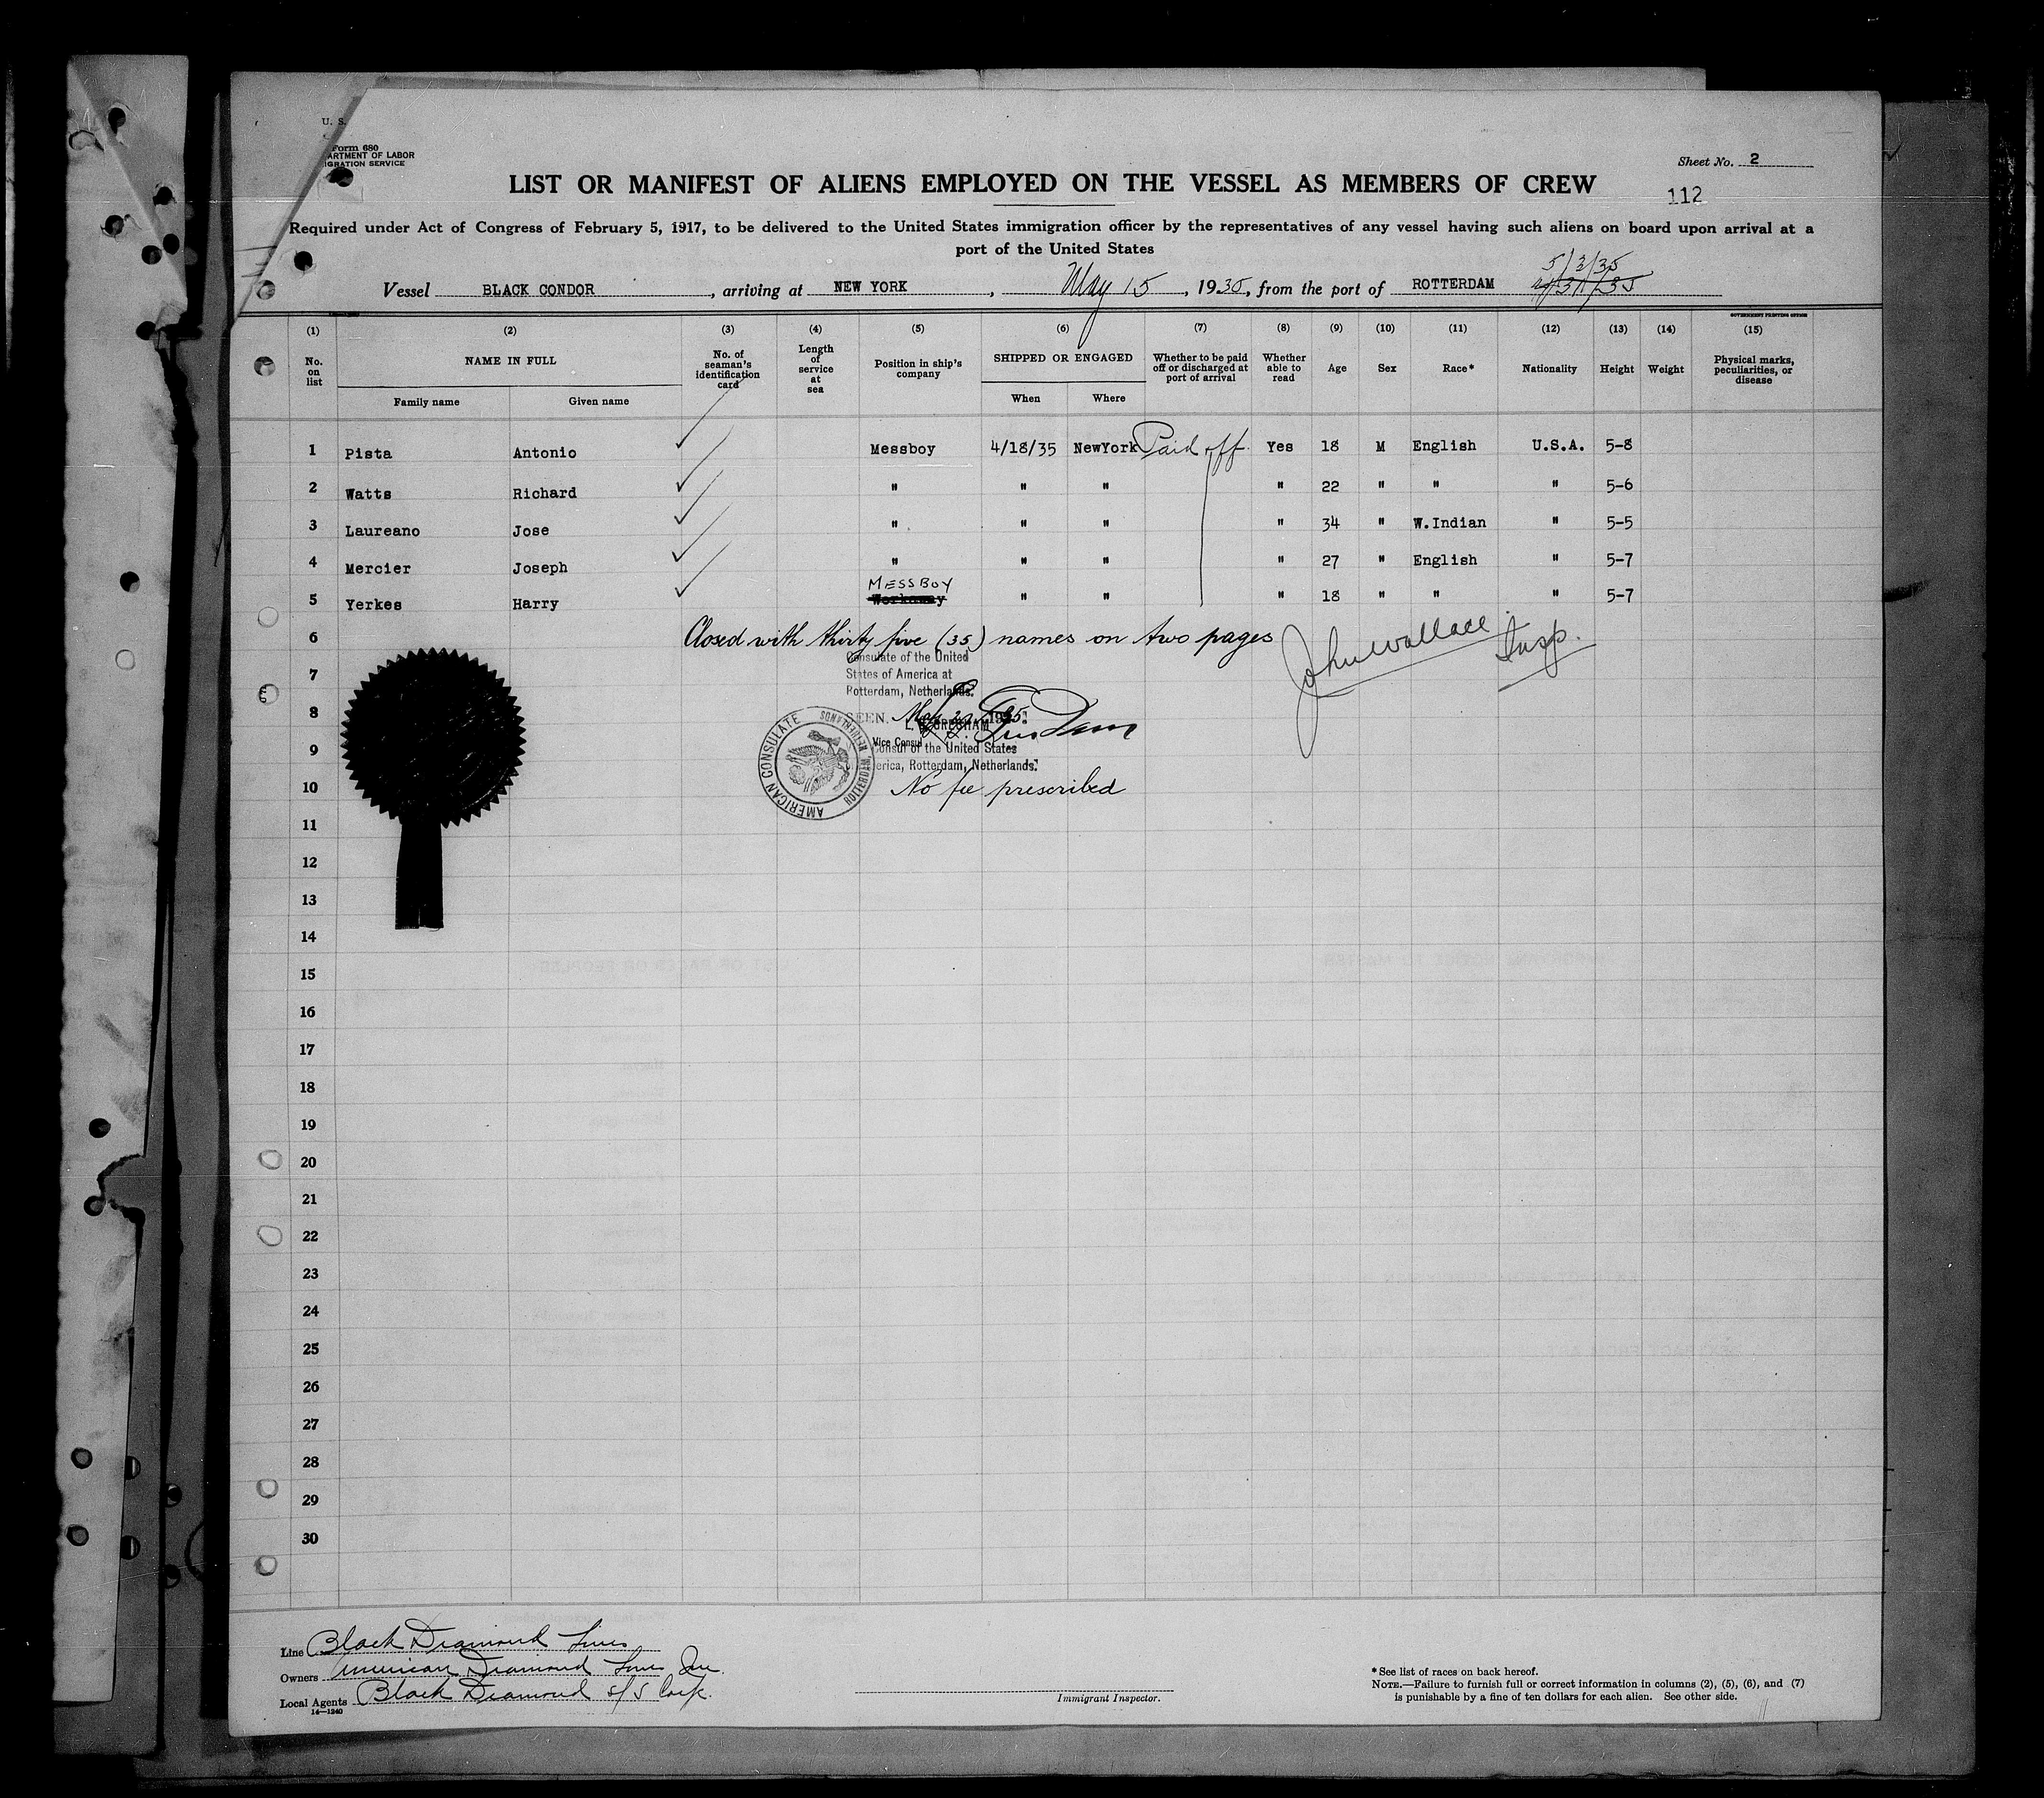 U. S.
Form 680
ARTMENT OF LABOR
IGRATION SERVICE
Sheet No. 2
LIST OR MANIFEST OF ALIENS EMPLOYED ON THE VESSEL AS MEMBERS OF CREW
112
Required under Act of Congress of February 5, 1917, to be delivered to the United States immigration officer by the representatives of any vessel having such aliens on board upon arrival at a
port of the United States
5/3/35
Vessel BLACK CONDOR, arriving at NEW YORK, May 15, 1935, from the port of ROTTERDAM
GOVERNMENT PRINTING OFFICE
(1) (2) (3) (4) (5) (6) (7) (8) (9) (10) (11) (12) (13) (14) (15)
No. on list NAME IN FULL No. of seaman's identification card Length of service at sea Position in ship's company SHIPPED OR ENGAGED Whether to be paid off or discharged at port of arrival Whether able to read Age Sex Race* Nationality Height Weight Physical marks, peculiarities, or disease
Family name Given name When Where
1 Pista Antonio Messboy 4/18/35 NewYork Paid off Yes 18 M English U.S.A. 5-8
2 Watts Richard " " " " 22 " " " 5-6
3 Laureano Jose " " " " 34 " W.Indian " 5-5
4 Mercier Joseph " " " " 27 " English " 5-7
MESSBOY
5 Yerkes Harry Workaway " " " 18 " " " 5-7
6 Closed with thirty five (35) names on two pages John Wallace Insp.
Consulate of the United
7 States of America at
Rotterdam, Netherlands.
8 SEEN, 1935
GRESHAM
Vice Consul
9 Consul of the United States
erica, Rotterdam, Netherlands.
AMERICAN CONSULATE ROTTERDAM, NETHERLANDS
10 No fee prescribed
11
12
13
14
15
16
17
18
19
20
21
22
23
24
25
26
27
28
29
30
Line Black Diamond Lines
Owners American Diamond Lines Inc.
Local Agents Black Diamond S/S Corp.
14—1240
Immigrant Inspector.
*See list of races on back hereof.
NOTE.—Failure to furnish full or correct information in columns (2), (5), (6), and (7)
is punishable by a fine of ten dollars for each alien. See other side.